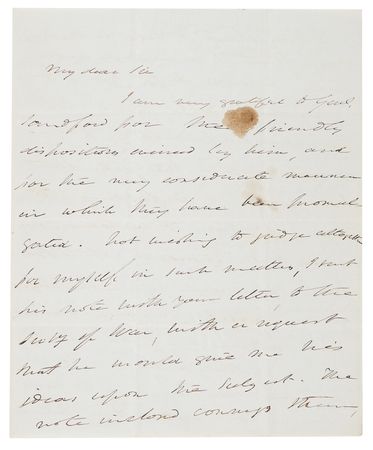 My dear Sir
I am very grateful to Genl.
Sandford for the friendly
dispositions evinced by him, and
for the very considerate manner
in which they have been promul
gated. Not wishing to judge altogether
for myself in such matters, I sent
his note with your letter, to the
Secy of War, with a request
that he would give me his
ideas upon the subject. The
note inclosed conveys them,